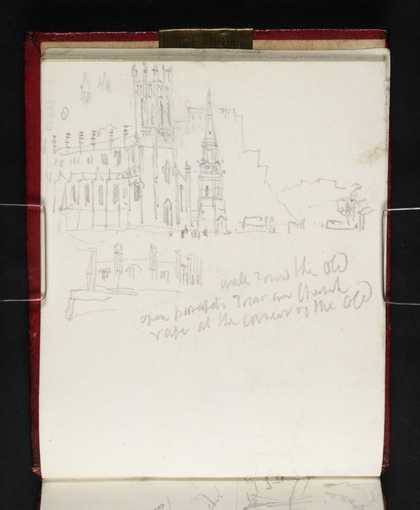 wall round the old
open parapets Tower new Church
rape at the corner of the old